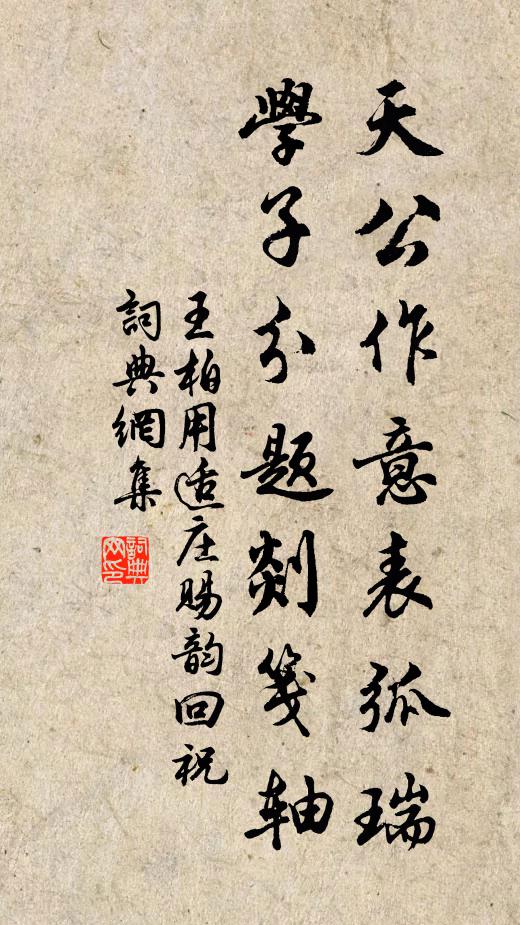 天公作意表弧瑞
學子分題剡箋軸
王柏用适庄賜韵回祝
詞典網集
詞典網印